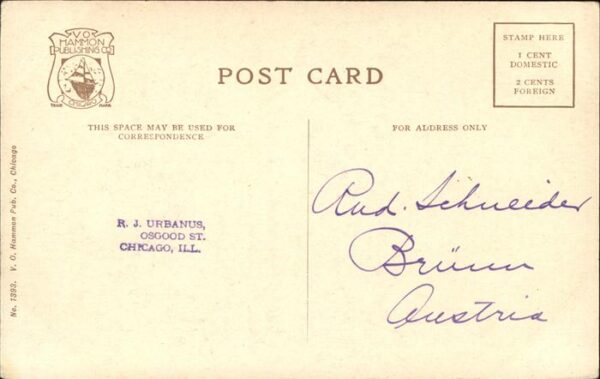 V.O.
HAMMON
PUBLISHING CO.
CHICAGO
TRADE MARK
POST CARD
STAMP HERE
1 CENT
DOMESTIC
2 CENTS
FOREIGN
THIS SPACE MAY BE USED FOR
CORRESPONDENCE
FOR ADDRESS ONLY
No. 1393. V. O. Hammon Pub. Co., Chicago
R. J. URBANUS,
OSGOOD ST.
CHICAGO, ILL.
Rud. Schneider
Brünn
Austria